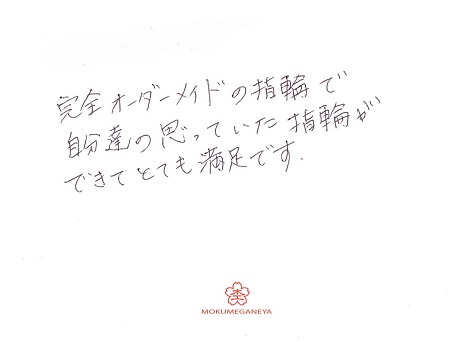 完全オーダーメイドの指輪で
自分達の思っていた指輪が
できてとても満足です.
MOKUMEGANEYA